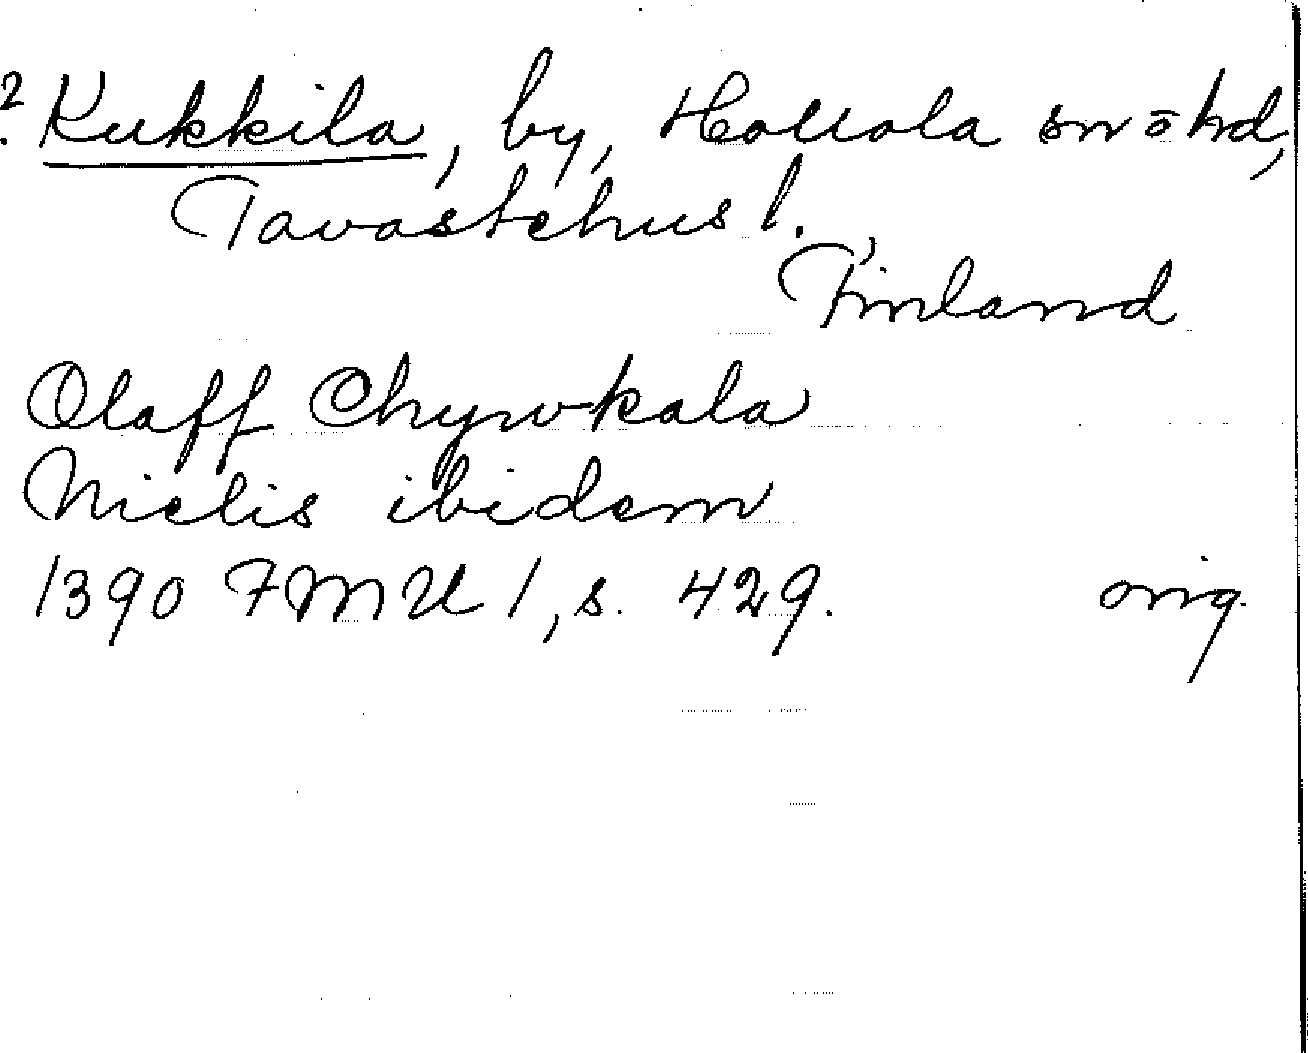 ? Kukkila, by, Hollola sn o hd,
Tavastehus l.,
Finland
Olaff Chywkala
Niclis ibidem
1390 FMU 1, s. 429. orig.